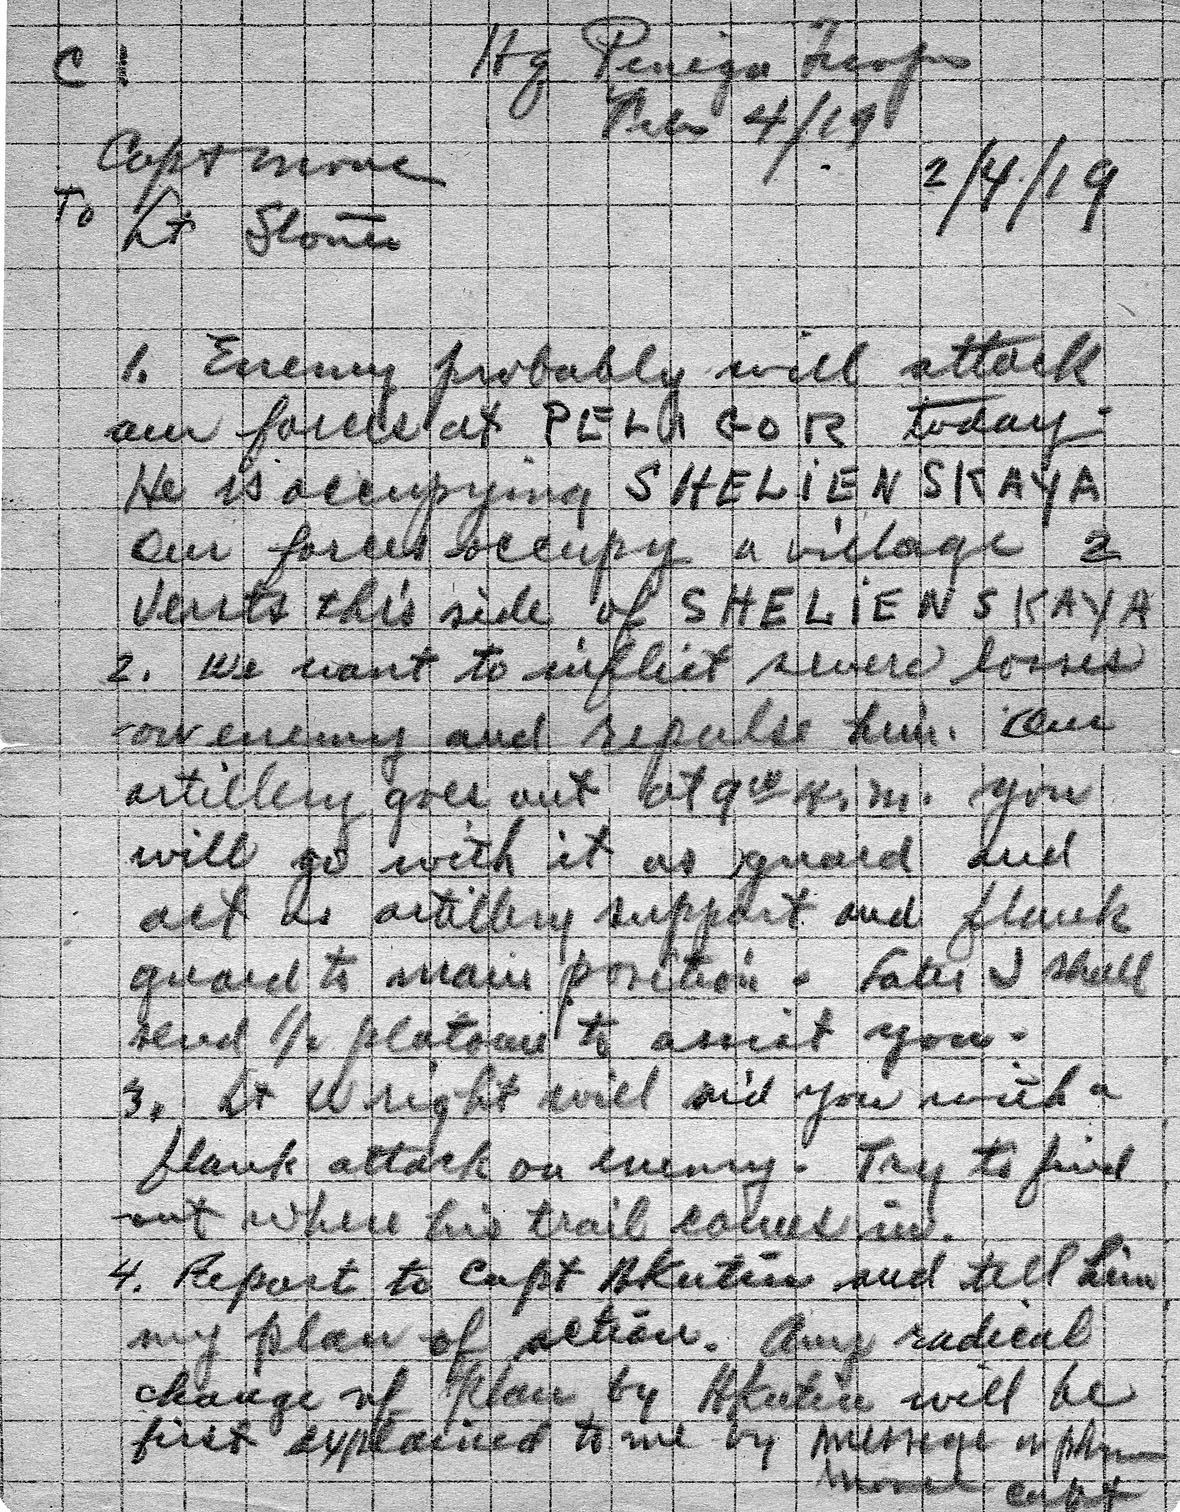 C 1
Hq Pinega Troops
Feb 4/19
Capt Moore
2/4/19
To Lt Stoner
1. Enemy probably will attack
our forces at PELAGOR today.
He is occupying SHELIENSKAYA
Our forces occupy a village 2
versts this side of SHELIENSKAYA
2. We want to inflict severe losses
on enemy and repulse him. Our
artillery goes out at 9 a.m. you
will go with it as guard and
act as artillery support and flank
guard to main position. Later I shall
send 1/2 platoon to assist you.
3. Lt Wright will aid you with a
flank attack on enemy. Try to find
out where his trail comes in.
4. Report to Capt Akutin and tell him
my plan of action. Any radical
change of plan by Akutin will be
first explained to me by message or phone
Moore Capt